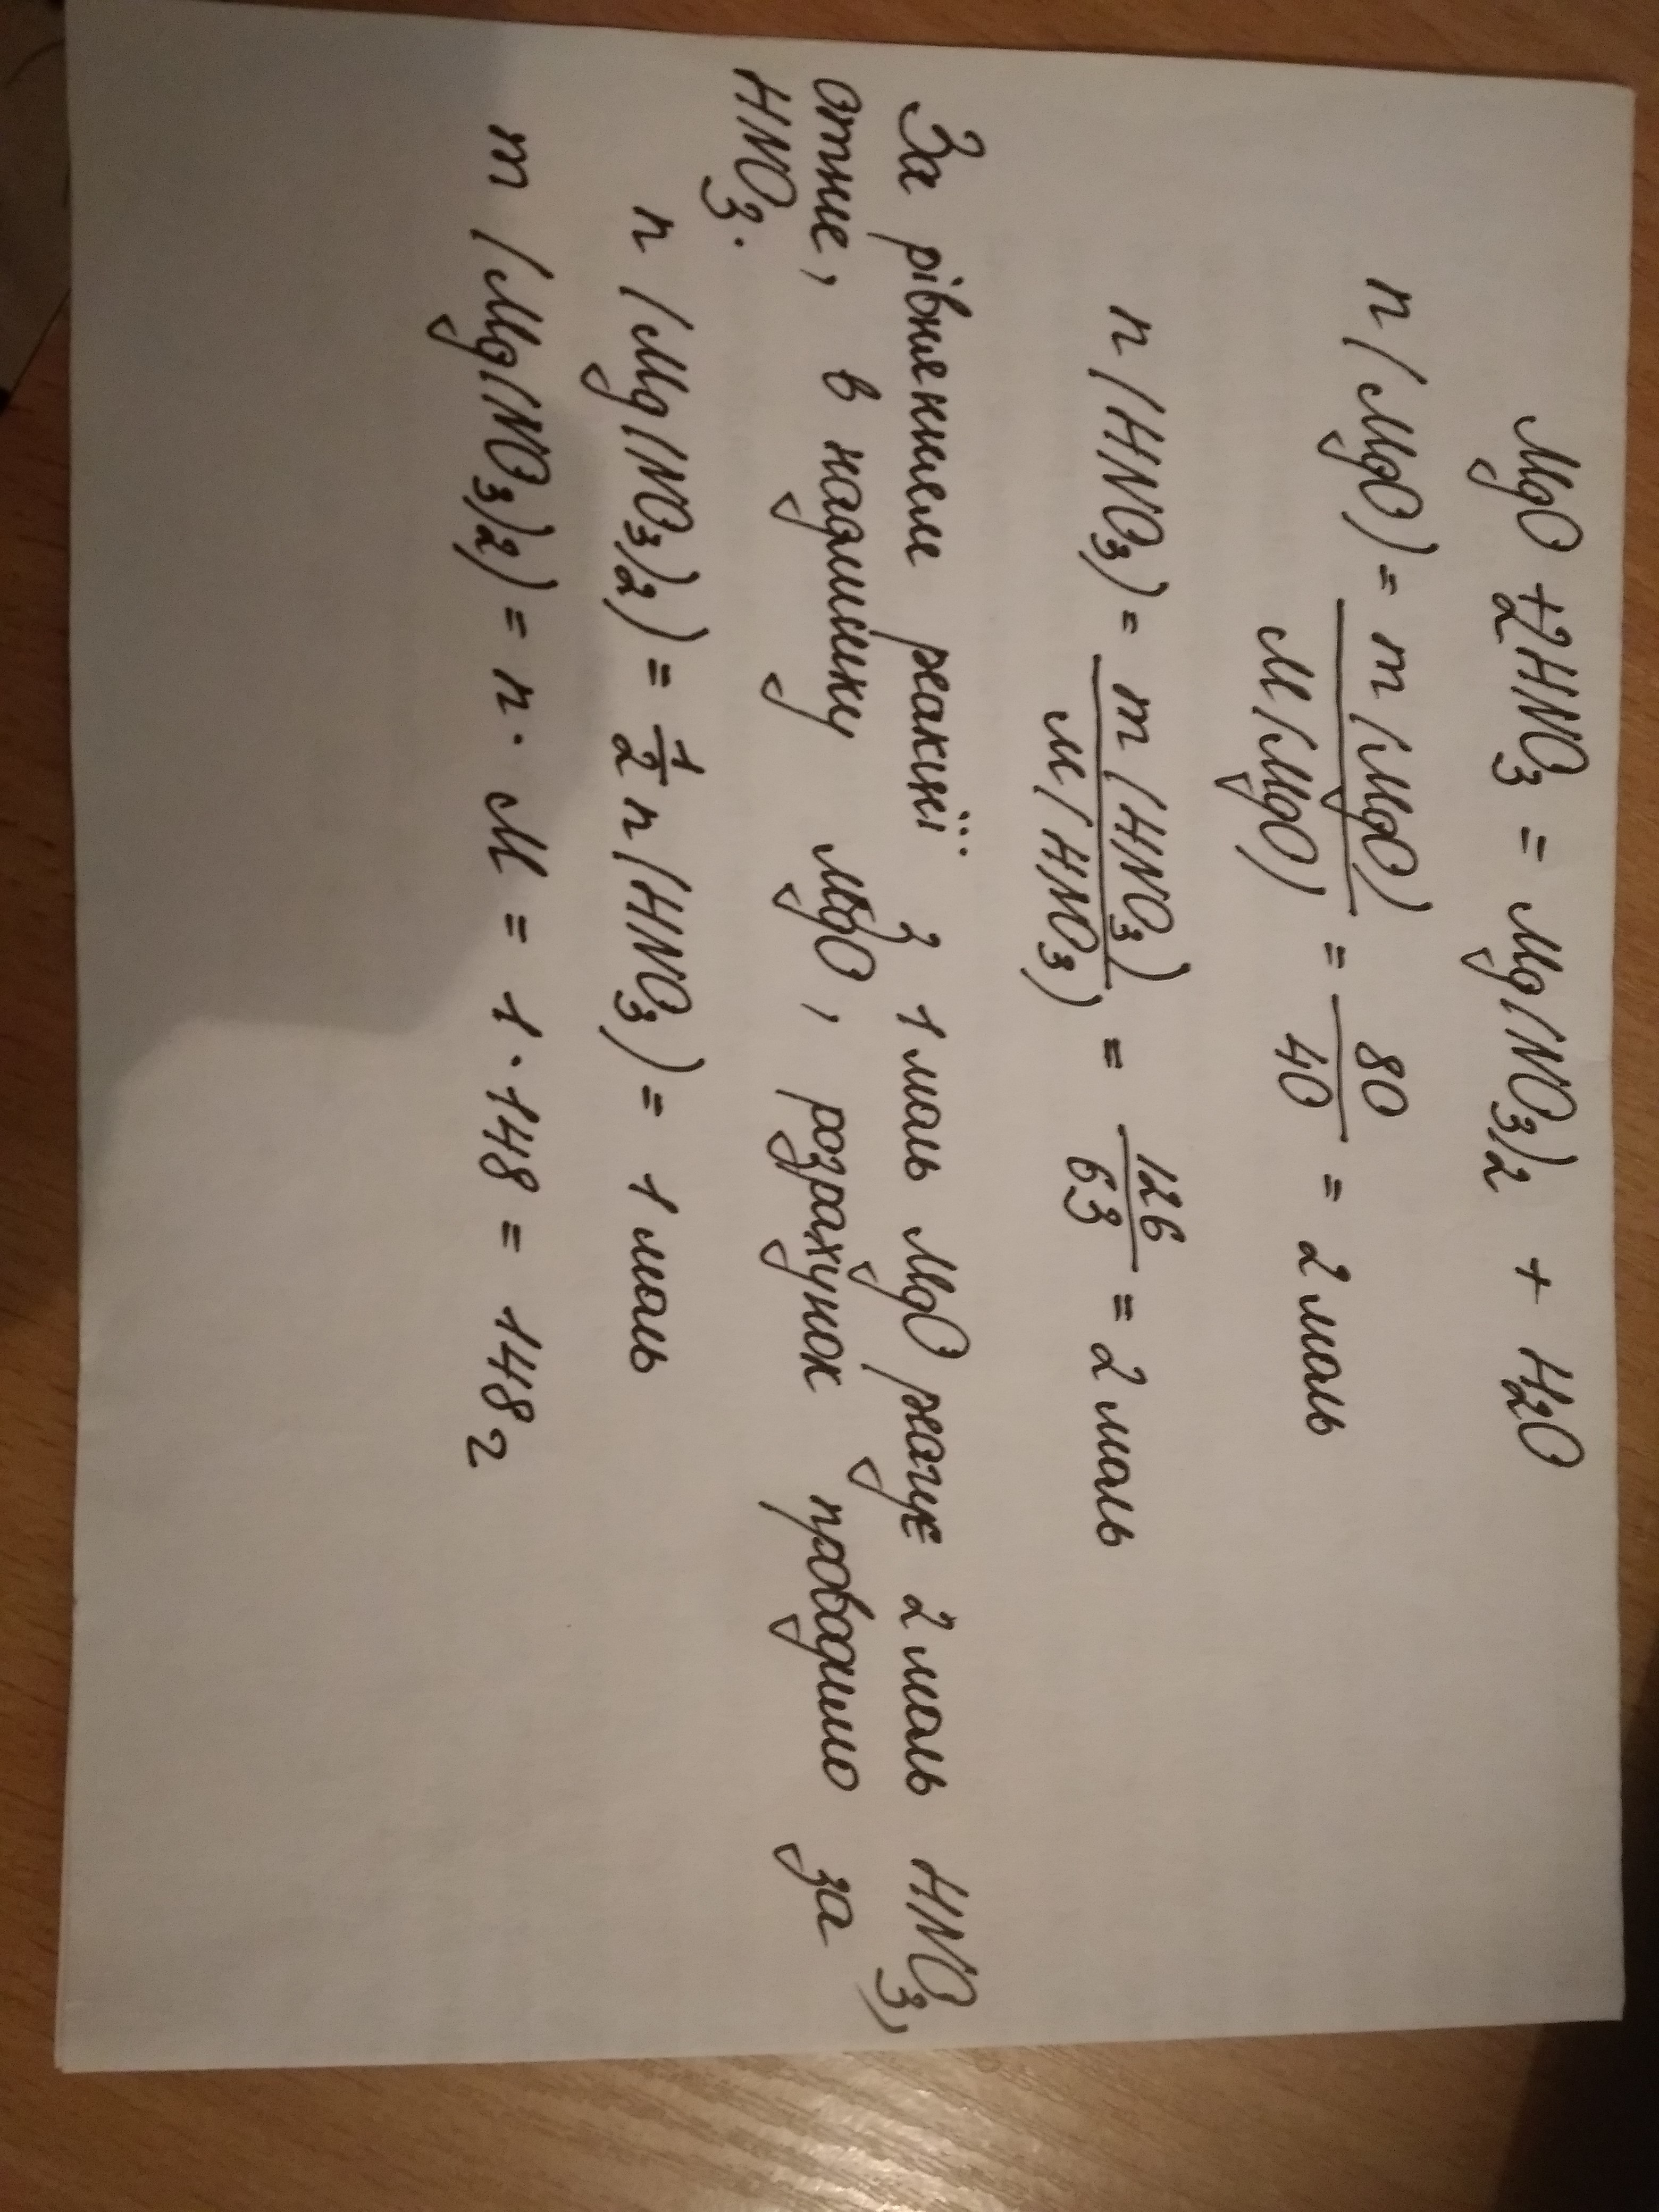 MgO + 2HNO3 = Mg(NO3)2 + H2O
n(MgO) = m(MgO) / M(MgO) = 80 / 40 = 2 моль
n(HNO3) = m(HNO3) / M(HNO3) = 126 / 63 = 2 моль
За рівнянням реакції з 1 моль MgO реагує 2 моль HNO3,
отже, в надлишку MgO, розрахунок проводимо за
HNO3.
n(Mg(NO3)2) = 1/2 n(HNO3) = 1 моль
m(Mg(NO3)2) = n · M = 1 · 148 = 148 г